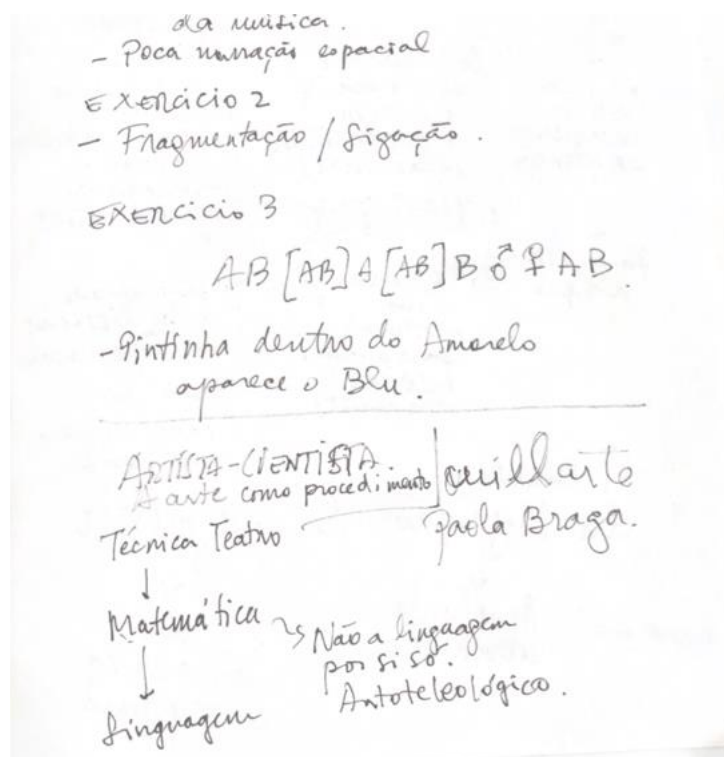 da música.
- Poca narração espacial
EXERCICIO 2
- Fragmentação / Ligação.
EXERCICIO 3
AB [AB] A [AB] B ♂ ♀ AB.
- Pintinha dentro do Amarelo
aparece o Blu.
ARTISTA-CIENTISTA.
A arte como procedimento
Paola Braga.
Técnica Teatro
↓
Matemática
Não a linguagem
por si só.
Autoteleológico.
↓
Linguagem